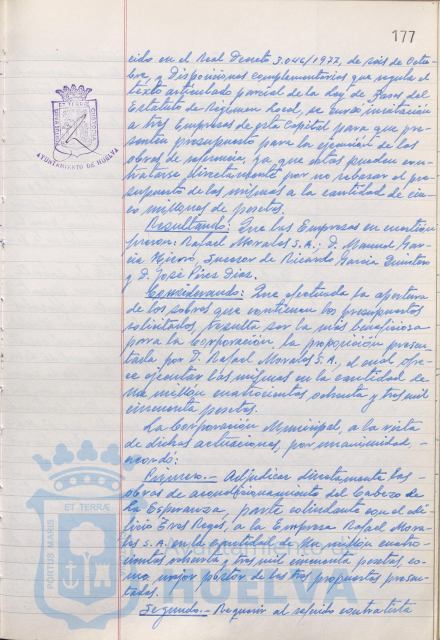 177
cido en el Real Decreto 3.046/1977, de seis de Octu-
bre, y Disposiciones complementarias que regula el
texto articulado parcial de la Ley de Bases del
Estatuto de Régimen Local, se cursó invitación
a tres Empresas de esta Capital para que pre-
senten presupuesto para la ejecución de las
obras de referencia, ya que estas pueden con-
tratarse directamente por no rebasar el pre-
supuesto de las mismas a la cantidad de cin-
co millones de pesetas.
Resultando: Que las Empresas en cuestión
fueron: Rafael Morales S.A.; D. Manuel Gar-
cía Sucesor de Ricardo García Quintero
y D. José Pérez Díaz.
Considerando: Que efectuada la apertura
de los sobres que contienen los presupuestos
solicitados, resulta ser la más beneficiosa
para la Corporación, la proposición presen-
tada por D. Rafael Morales S.A., el cual ofre-
ce ejecutar las mismas en la cantidad de
un millón cuatrocientas ochenta y tres mil
cincuenta pesetas.
La Corporación Municipal, a la vista
de dichas actuaciones, por unanimidad,
acordó:
Primero.- Adjudicar directamente las
obras de acondicionamiento del Cabezo de
La Esperanza, parte colindante con el edi-
ficio Tres Reyes, a la Empresa Rafael Mora-
les S.A. en la cantidad de un millón cuatro-
cientas ochenta y tres mil cincuenta pesetas, co-
mo mejor postor de las tres propuestas presen-
tadas.
Segundo.- Requerir al referido contratista
AYUNTAMIENTO DE HUELVA
PORTUS MARIS ET TERRAE
Ayuntamiento de
HUELVA